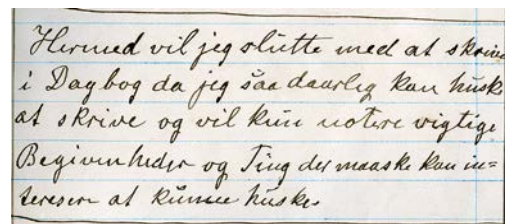 Hermed vil jeg slutte med at skrive
i Dagbog da jeg saa daarlig kan huske
at skrive og vil kun notere vigtige
Begivenheder og Ting der maaske kan in=
teresere at kunne huske.